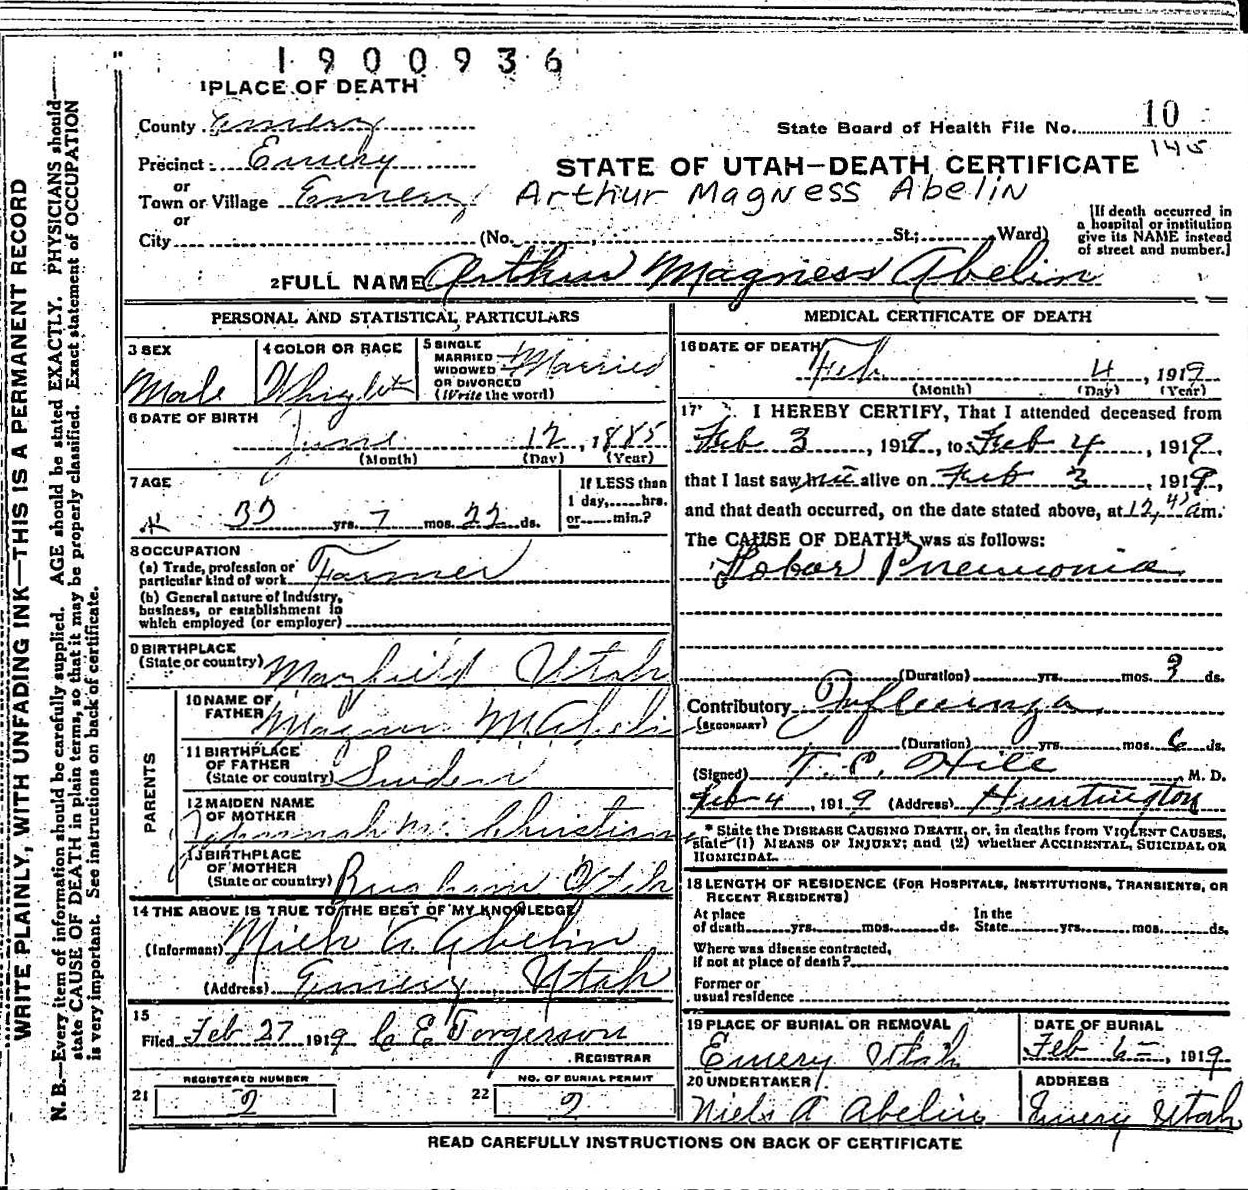 1900936
1 PLACE OF DEATH
County Emery
State Board of Health File No. 10
145
Precinct Emery
STATE OF UTAH—DEATH CERTIFICATE
or
Town or Village Emery
Arthur Magness Abelin
or
City (No. St.; Ward)
[If death occurred in
a hospital or institution
give its NAME instead
of street and number.]
2 FULL NAME Arthur Magness Abelin
PERSONAL AND STATISTICAL PARTICULARS
3 SEX
Male
4 COLOR OR RACE
5 SINGLE
MARRIED
WIDOWED
OR DIVORCED
(Write the word)
Married
6 DATE OF BIRTH
June 12, 1885
(Month) (Day) (Year)
7 AGE
yrs. 7 mos. 22 ds.
If LESS than
1 day, hrs.
or min.?
8 OCCUPATION
(a) Trade, profession or
particular kind of work Farmer
(b) General nature of Industry,
business, or establishment in
which employed (or employer)
9 BIRTHPLACE
(State or country) Utah
PARENTS
10 NAME OF
FATHER
11 BIRTHPLACE
OF FATHER
(State or country)
12 MAIDEN NAME
OF MOTHER
13 BIRTHPLACE
OF MOTHER
(State or country) Utah
14 THE ABOVE IS TRUE TO THE BEST OF MY KNOWLEDGE
(Informant) A. Abelin
(Address) Emery, Utah
15
Filed Feb 27 1919 C E Torgerson
REGISTRAR
REGISTERED NUMBER
21 2
NO. OF BURIAL PERMIT
22 2
MEDICAL CERTIFICATE OF DEATH
16 DATE OF DEATH
Feb 4, 1919
(Month) (Day) (Year)
17 I HEREBY CERTIFY, That I attended deceased from
Feb 3, 1919, to Feb 4, 1919,
that I last saw him alive on Feb 3, 1919,
and that death occurred, on the date stated above, at 12,45 am.
The CAUSE OF DEATH* was as follows:
Lobar Pneumonia
(Duration) yrs. mos. ds.
Contributory Influenza
(SECONDARY)
(Duration) yrs. mos. 6 ds.
(Signed) T. C. Hill M. D.
Feb 4, 1919 (Address) Huntington
* State the DISEASE CAUSING DEATH, or, in deaths from VIOLENT CAUSES,
state (1) MEANS OF INJURY; and (2) whether ACCIDENTAL, SUICIDAL OR
HOMICIDAL.
18 LENGTH OF RESIDENCE (FOR HOSPITALS, INSTITUTIONS, TRANSIENTS, OR
RECENT RESIDENTS)
At place
of death yrs. mos. ds.
In the
State yrs. mos. ds.
Where was disease contracted,
if not at place of death?
Former or
usual residence
19 PLACE OF BURIAL OR REMOVAL
Emery Utah
DATE OF BURIAL
Feb 6, 1919
20 UNDERTAKER
Niels A Abelin
ADDRESS
Emery Utah
READ CAREFULLY INSTRUCTIONS ON BACK OF CERTIFICATE
WRITE PLAINLY, WITH UNFADING INK—THIS IS A PERMANENT RECORD
N. B.—Every item of information should be carefully supplied. AGE should be stated EXACTLY. PHYSICIANS should
state CAUSE OF DEATH in plain terms, so that it may be properly classified. Exact statement of OCCUPATION
is very important. See instructions on back of certificate.